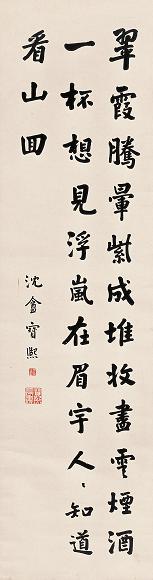 翠霞騰暈紫成堆收盡雲煙酒
一杯想見浮嵐在眉宇人人知道
看山回
沈盦寶熙